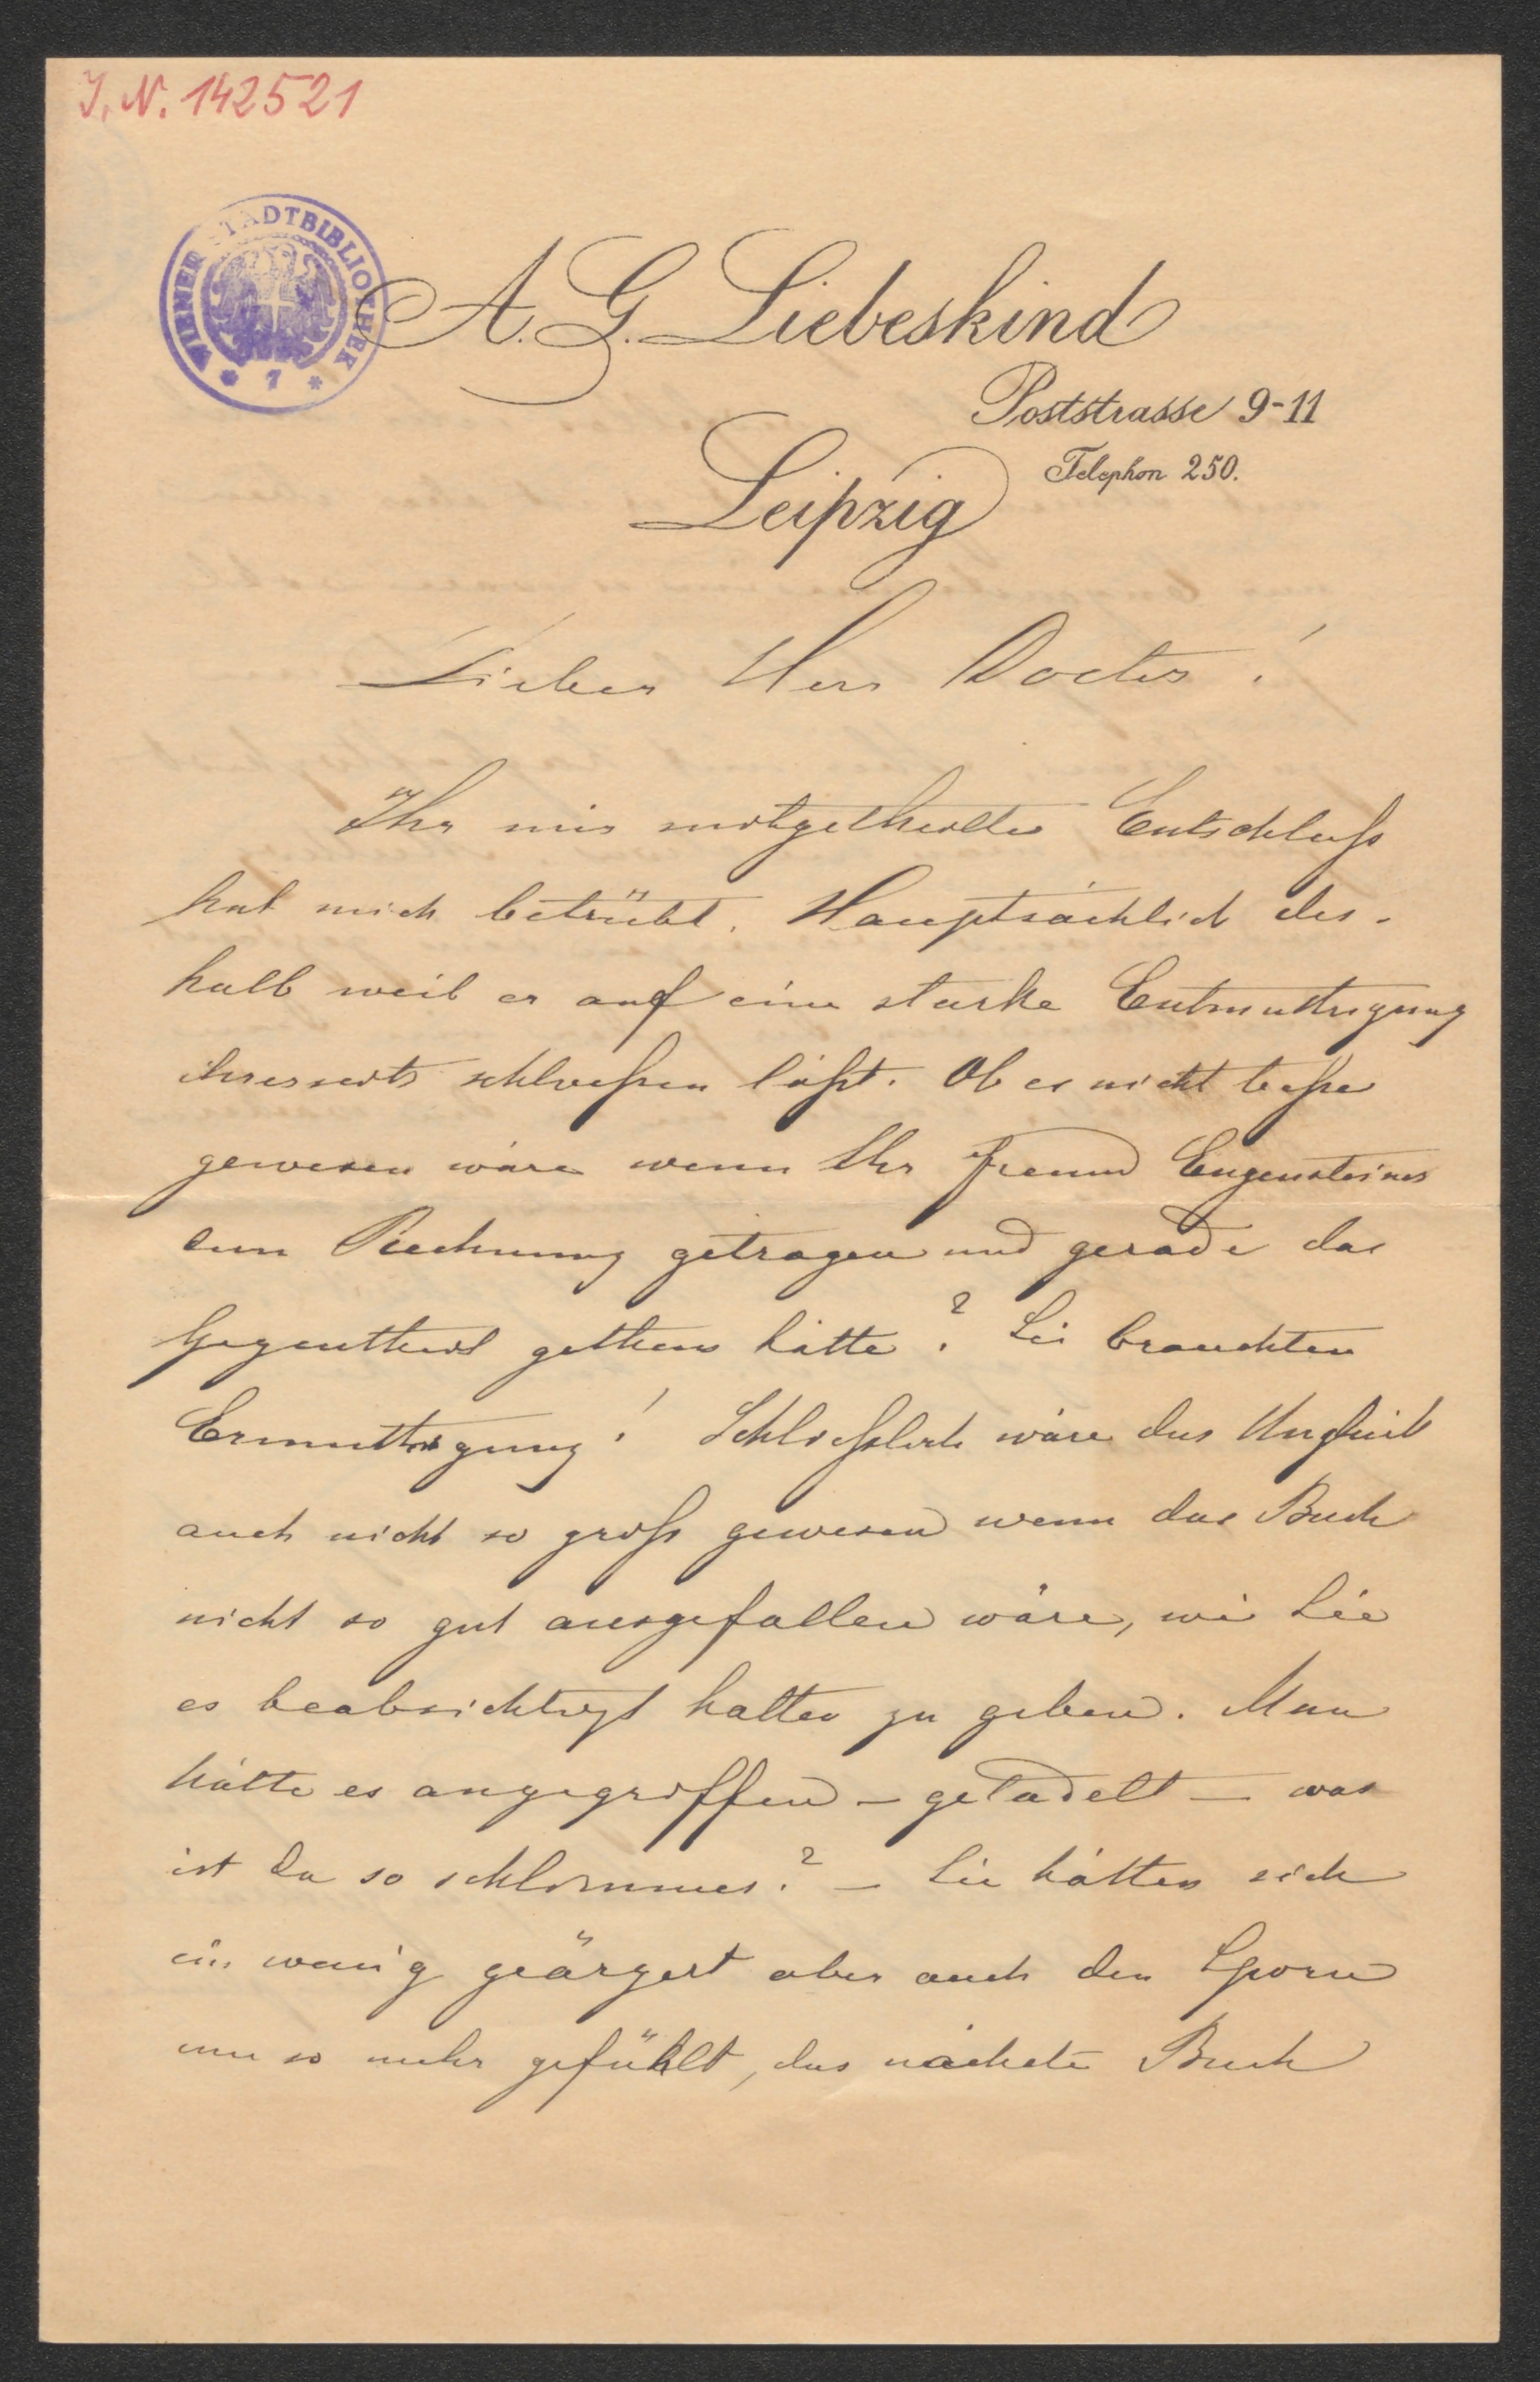 J. N. 142521
WIENER STADTBIBLIOTHEK
* 7 *
A. G. Liebeskind
Poststrasse 9-11
Telephon 250.
Leipzig
Lieber Herr Doctor!
Ihr mir mitgetheilter Entschluß
hat mich betrübt. Hauptsächlich des-
halb weil er auf eine starke Entmuthigung
ihrerseits schließen läßt. Ob es nicht beßer
gewesen wäre wenn Ihr Freund
dem Rechnung getragen und gerade das
Gegentheil gethan hätte? Sie brauchten
Ermuthigung! Schließlich wäre das Unglück
auch nicht so groß gewesen wenn das Buch
nicht so gut ausgefallen wäre, wie Sie
es beabsichtigt hatten zu geben. Man
hätte es angegriffen – getadelt – was
ist da so schlimmes? – Sie hätten sich
ein wenig geärgert aber auch den Sporn
um so mehr gefühlt, das nächste Buch